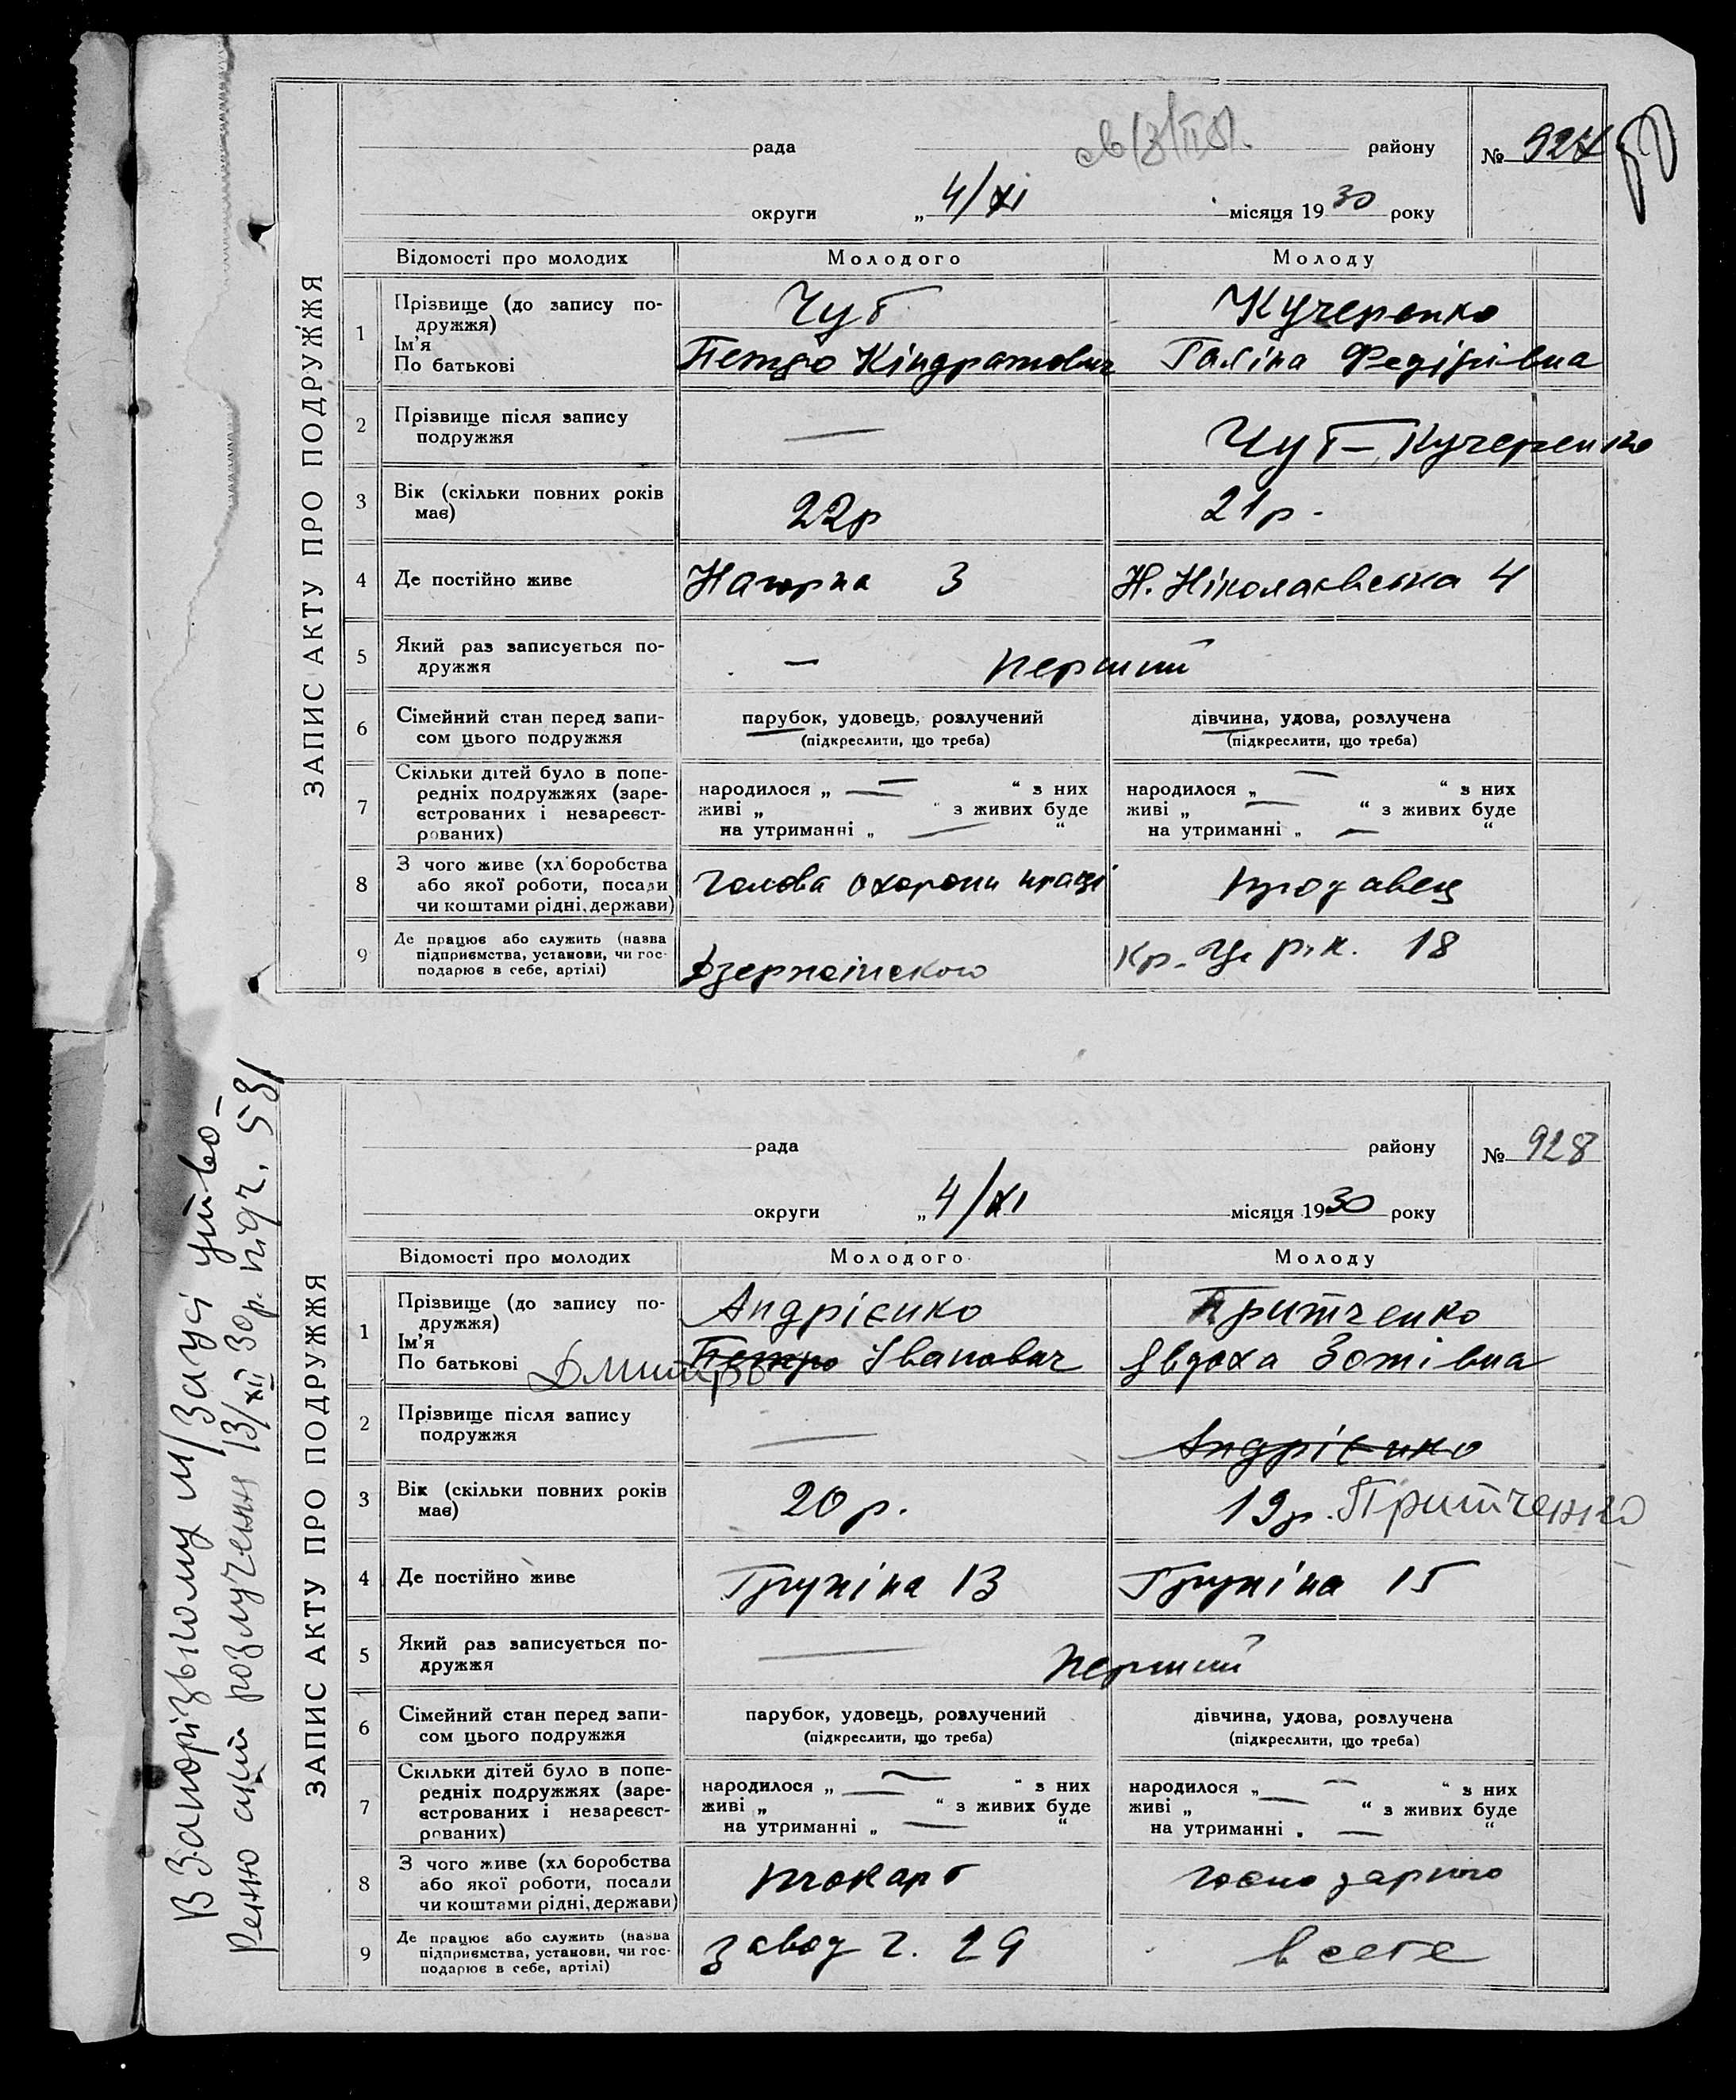 рада района
№ 927
округи „ 4/XI місяця 1930 року
ЗАПИС АКТУ ПРО ПОДРУЖЖЯ
Відомості про молодих Молодого Молоду
1 Прізвище (до запису по-
дружжя)
Ім'я
По батькові
Чуб
Петро Кіндратович
Кучеренко
Галіна Федірівна
2 Прізвище після запису
подружжя
— Чуб-Кучеренко
3 Вік (скільки повних років
має)
22р 21р.
4 Де постійно живе Нагорна 3 Н. Ніколаєвська 4
5 Який раз записується по-
дружжя
— перший
6 Сімейний стан перед запи-
сом цього подружжя
парубок, удовець, розлучений
(підкреслити, що треба)
дівчина, удова, розлучена
(підкреслити, що треба)
7 Скільки дітей було в попе-
редніх подружжях (заре-
єстрованих і незареєст-
рованих)
народилося „ — “ з них
живі „ “ з живих буде
на утриманні „ — “
народилося „ — “ з них
живі „ — “ з живих буде
на утриманні „ — “
8 З чого живе (хліборобства
або якої роботи, посади
чи коштами рідні, держави)
голова охорони праці продавец
9 Де працює або служить (назва
підприємства, установи, чи гос-
подарює в себе, артілі)
Дзержінского 18
рада району
№ 928
округи „ 4/XI місяця 1930 року
ЗАПИС АКТУ ПРО ПОДРУЖЖЯ
Відомості про молодих Молодого Молоду
1 Прізвище (до запису по-
дружжя)
Ім'я
По батькові
Андрієнко
Дмитро Петро Іванович
Притченко
Явдоха Зотівна
2 Прізвище після запису
подружжя
— Андрієнко
3 Вік (скільки повних років
має)
20р. 19р. Притченко
4 Де постійно живе 13 15
5 Який раз записується по-
дружжя
— перший
6 Сімейний стан перед запи-
сом цього подружжя
парубок, удовець, розлучений
(підкреслити, що треба)
дівчина, удова, розлучена
(підкреслити, що треба)
7 Скільки дітей було в попе-
редніх подружжях (заре-
єстрованих і незареєст-
рованих)
народилося „ — “ з них
живі „ “ з живих буде
на утриманні „ — “
народилося „ — “ з них
живі „ — “ з живих буде
на утриманні „ — “
8 З чого живе (хліборобства
або якої роботи, посади
чи коштами рідні, держави)
токарь
9 Де працює або служить (назва
підприємства, установи, чи гос-
подарює в себе, артілі)
завод ч. 29 в себе
В Запорізькому М/Загсі утво-
ренню акт розлучення 13/XII 30р. під ч. 531